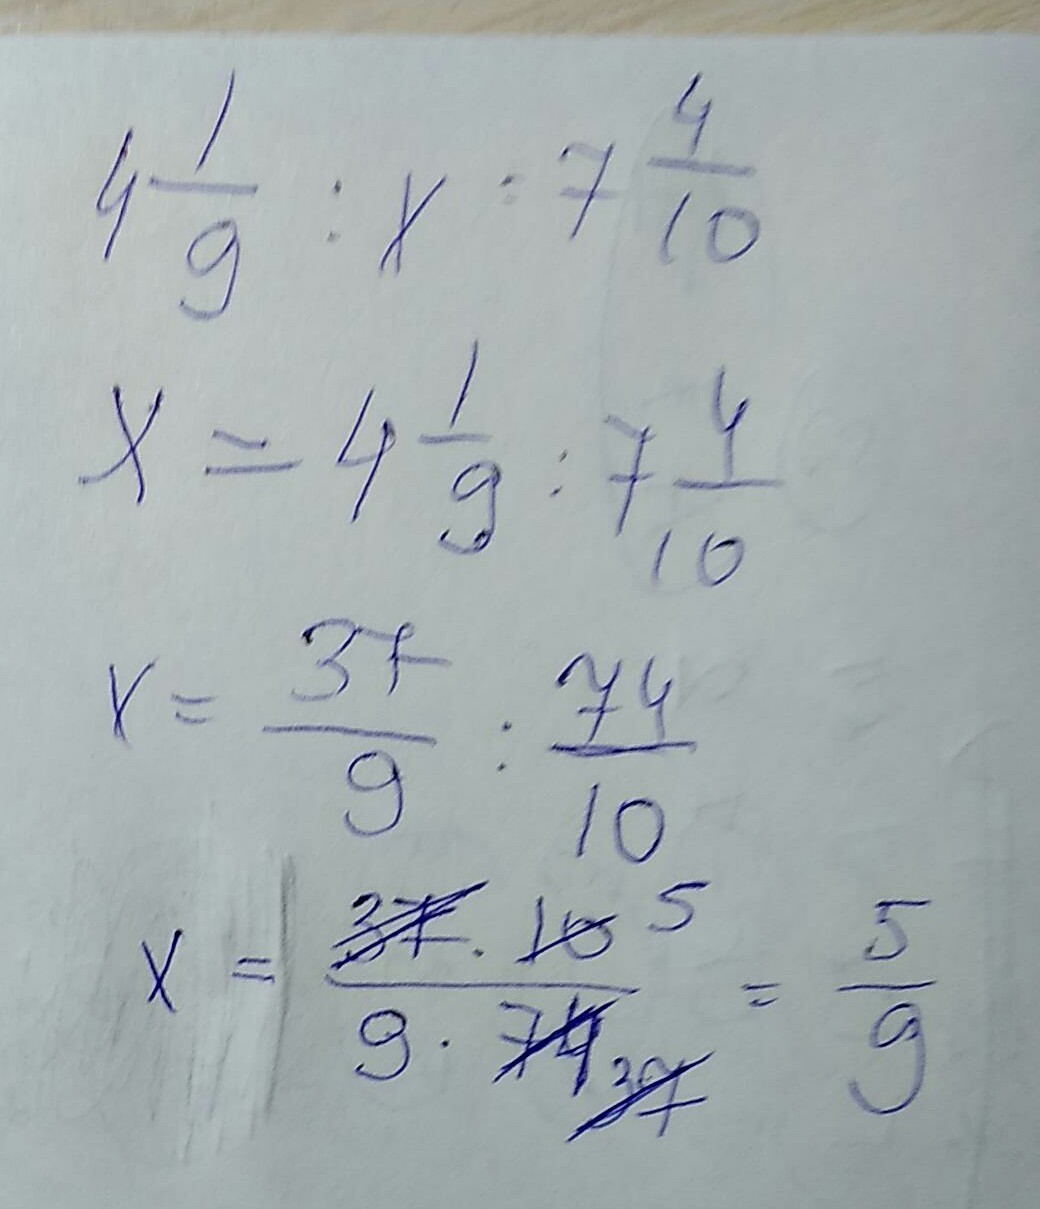 4 1/9 : x = 7 4/10
x = 4 1/9 : 7 4/10
x = 37/9 : 74/10
x = 37 · 10 5 / 9 · 74 37 = 5/9